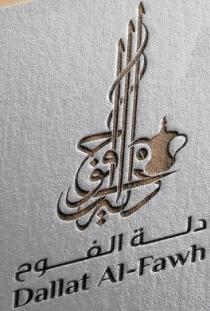 دلة الفوح
Dallat Al-Fawh